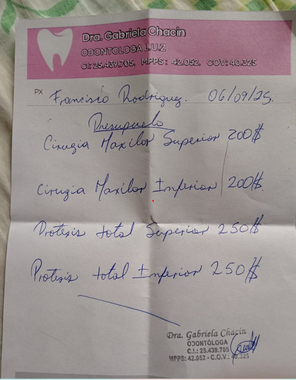 Dra. Gabriela Chacin
ODONTOLOGA L.U.Z
C.I: 25.439.705. MPPS: 42.052. COV: 40.325
PX Francisco Rodriguez. 06/09/25.
Presupuesto
Cirugia Maxilar Superior 200$
Cirugia Maxilar Inferior 200$
Protesis total Superior 250$
Protesis total Inferior 250$
Dra. Gabriela Chacin
ODONTÓLOGA
MPPS: 42.052 - C.O.V.: